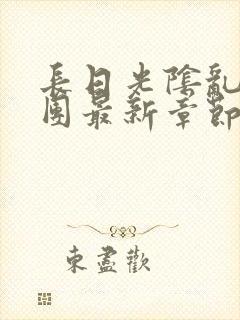 長日光陰亂
團最新章節
東盡歡